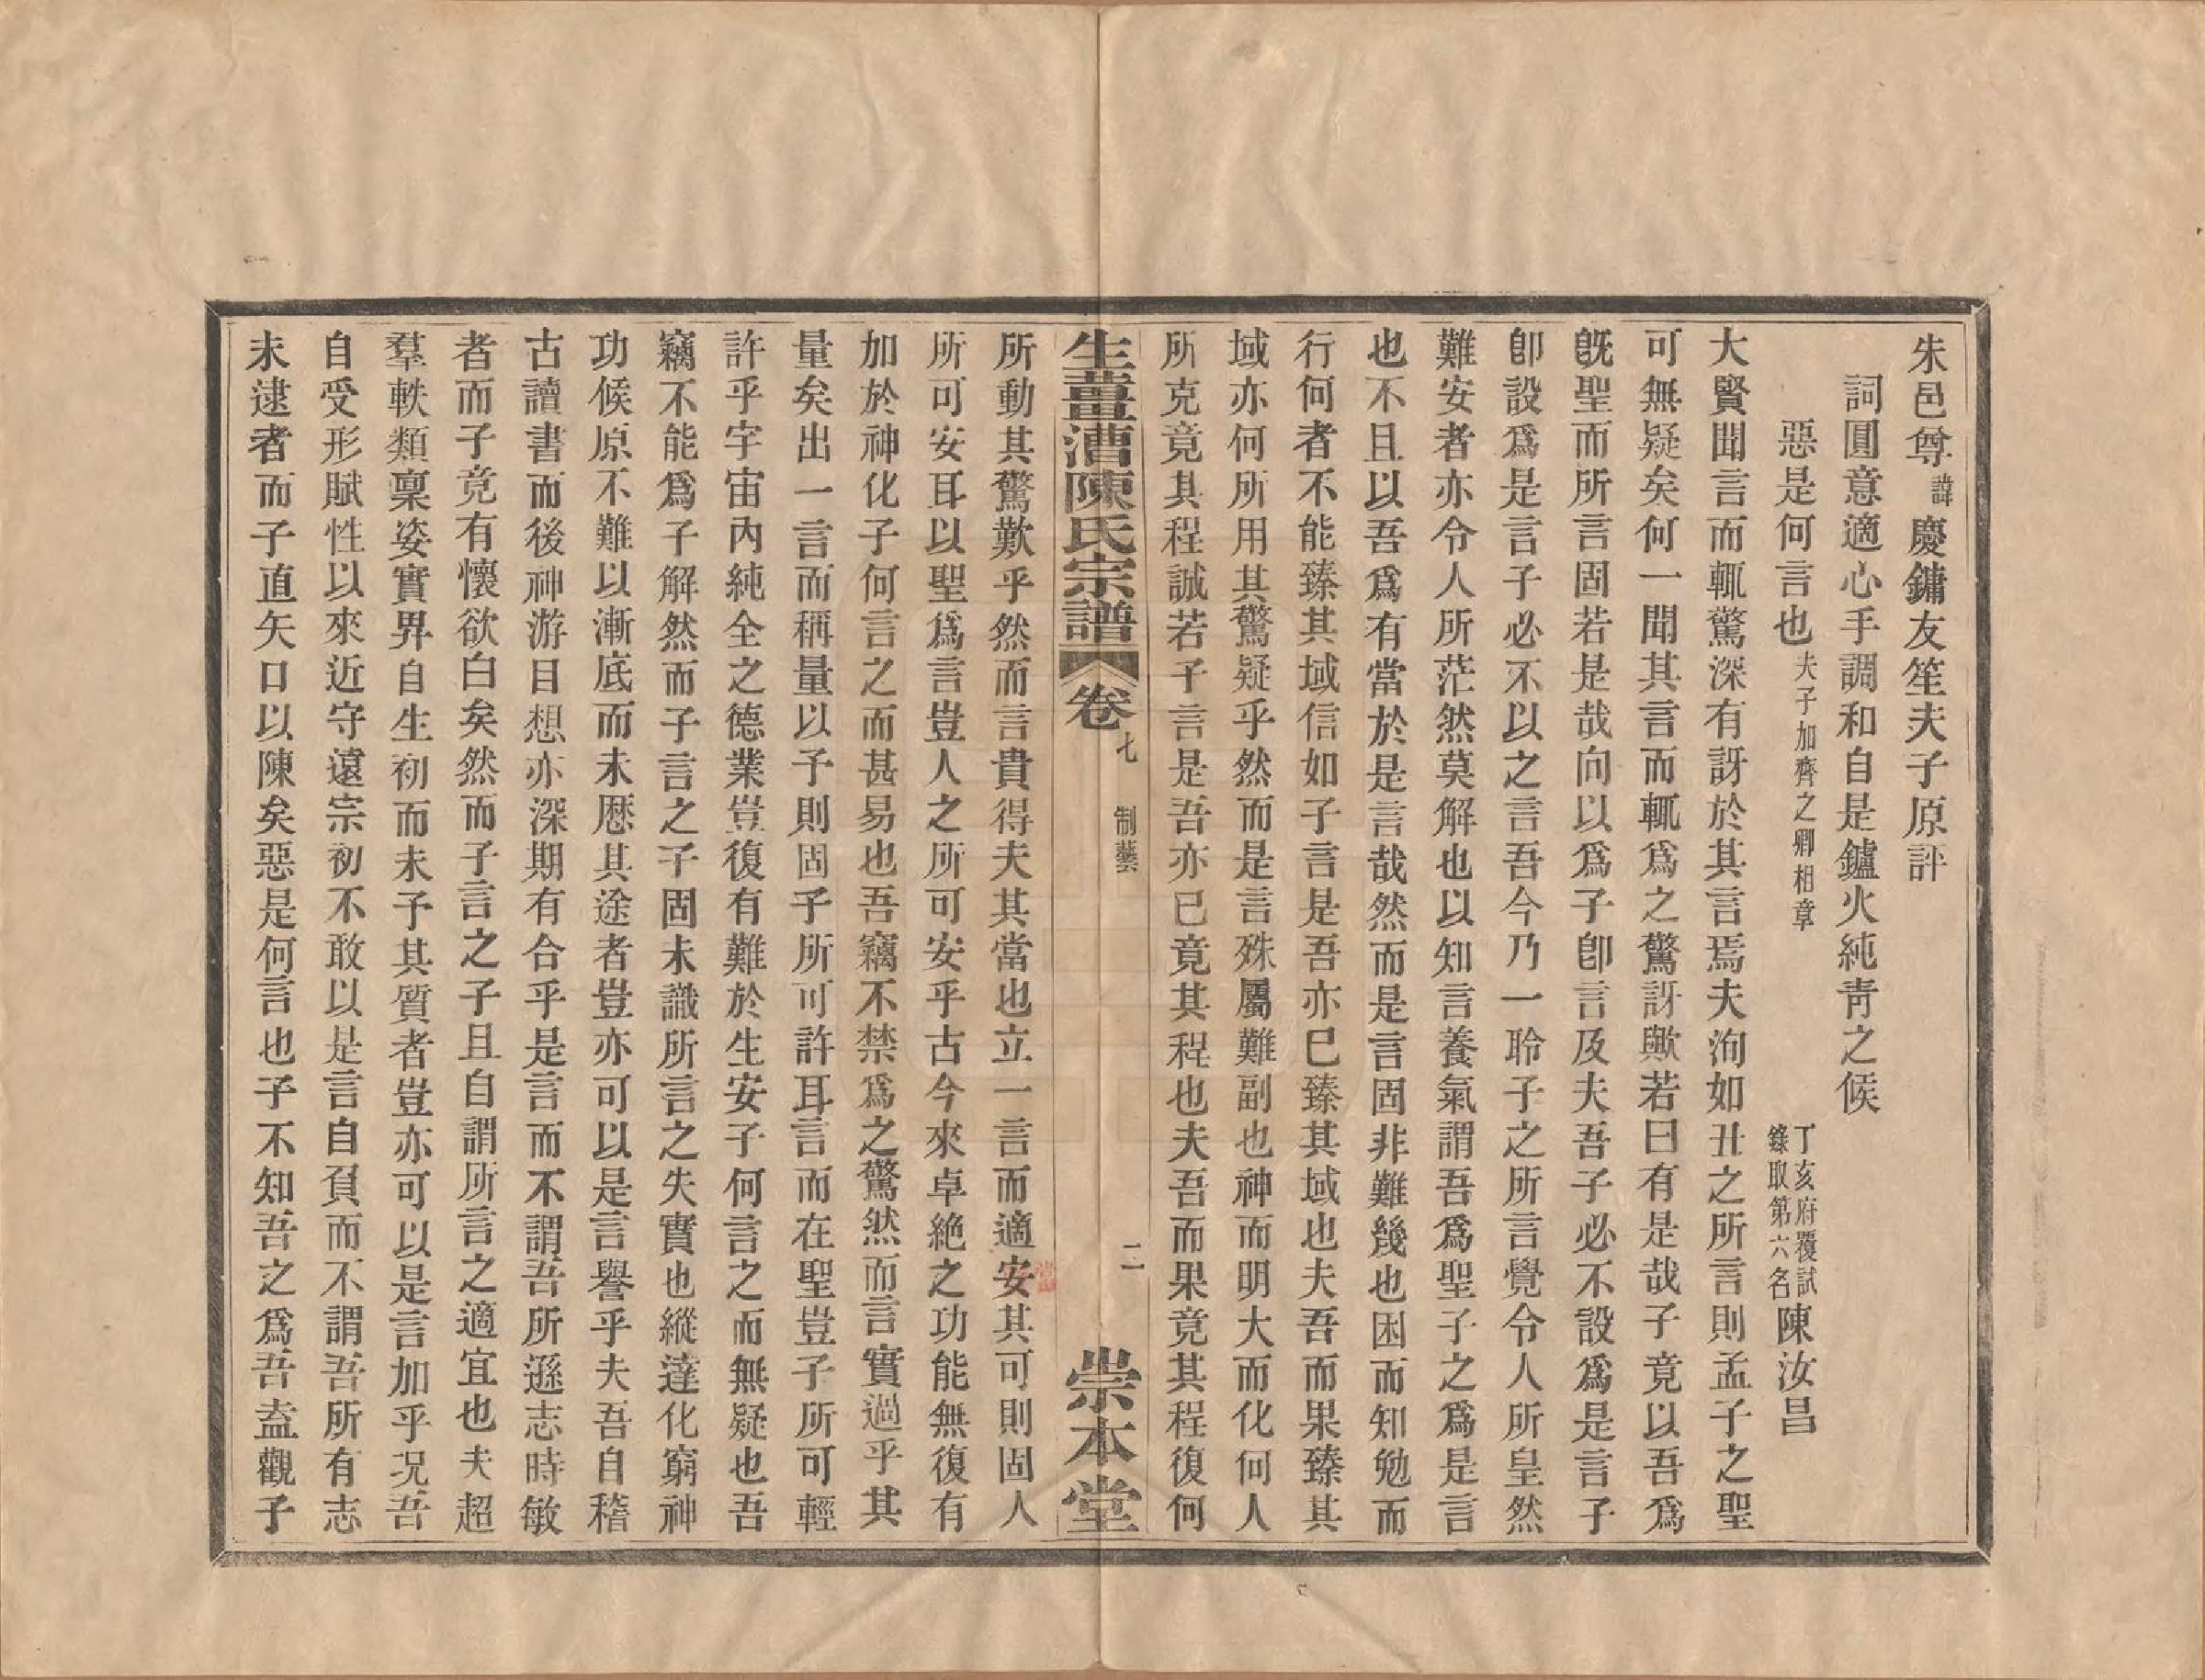 朱邑尊諱慶鏞友笙夫子原評
詞圓意適心手調和自是鑪火純靑之候
惡是何言也夫子加齊之卿相章 丁亥府覆試錄取第六名陳汝昌
大賢聞言而輒驚深有訝於其言焉夫洵如丑之所言則孟子之聖
可無疑矣何一聞其言而輒爲之驚訝歟若曰有是哉子竟以吾爲
旣聖而所言固若是哉向以爲子卽言及夫吾子必不設爲是言子
卽設爲是言子必不以之言吾今乃一聆子之所言覺令人所皇然
難安者亦令人所茫然莫解也以知言養氣謂吾爲聖子之爲是言
也不且以吾爲有當於是言哉然而是言固非難幾也困而知勉而
行何者不能臻其域信如子言是吾亦已臻其域也夫吾而果臻其
域亦何所用其驚疑乎然而是言殊屬難副也神而明大而化何人
所克竟其程誠若子言是吾亦已竟其程也夫吾而果竟其程復何
生薑漕陳氏宗譜 卷七 制藝 二 崇本堂
所動其驚歎乎然而言貴得夫其當也立一言而適安其可則固人
所可安耳以聖爲言豈人之所可安乎古今來卓絶之功能無復有
加於神化子何言之而甚易也吾竊不禁爲之驚然而言實過乎其
量矣出一言而稱量以予則固予所可許耳言而在聖豈子所可輕
許乎宇宙內純全之德業豈復有難於生安子何言之而無疑也吾
竊不能爲子解然而子言之子固未識所言之失實也縱達化窮神
功候原不難以漸底而未歷其途者豈亦可以是言譽乎夫吾自稽
古讀書而後神游目想亦深期有合乎是言而不謂吾所遜志時敏
者而子竟有懷欲白矣然而子言之子且自謂所言之適宜也夫超
羣軼類稟姿實畀自生初而未予其質者豈亦可以是言加乎況吾
自受形賦性以來近守遠宗初不敢以是言自負而不謂吾所有志
未逮者而子直矢口以陳矣惡是何言也子不知吾之爲吾盍觀子